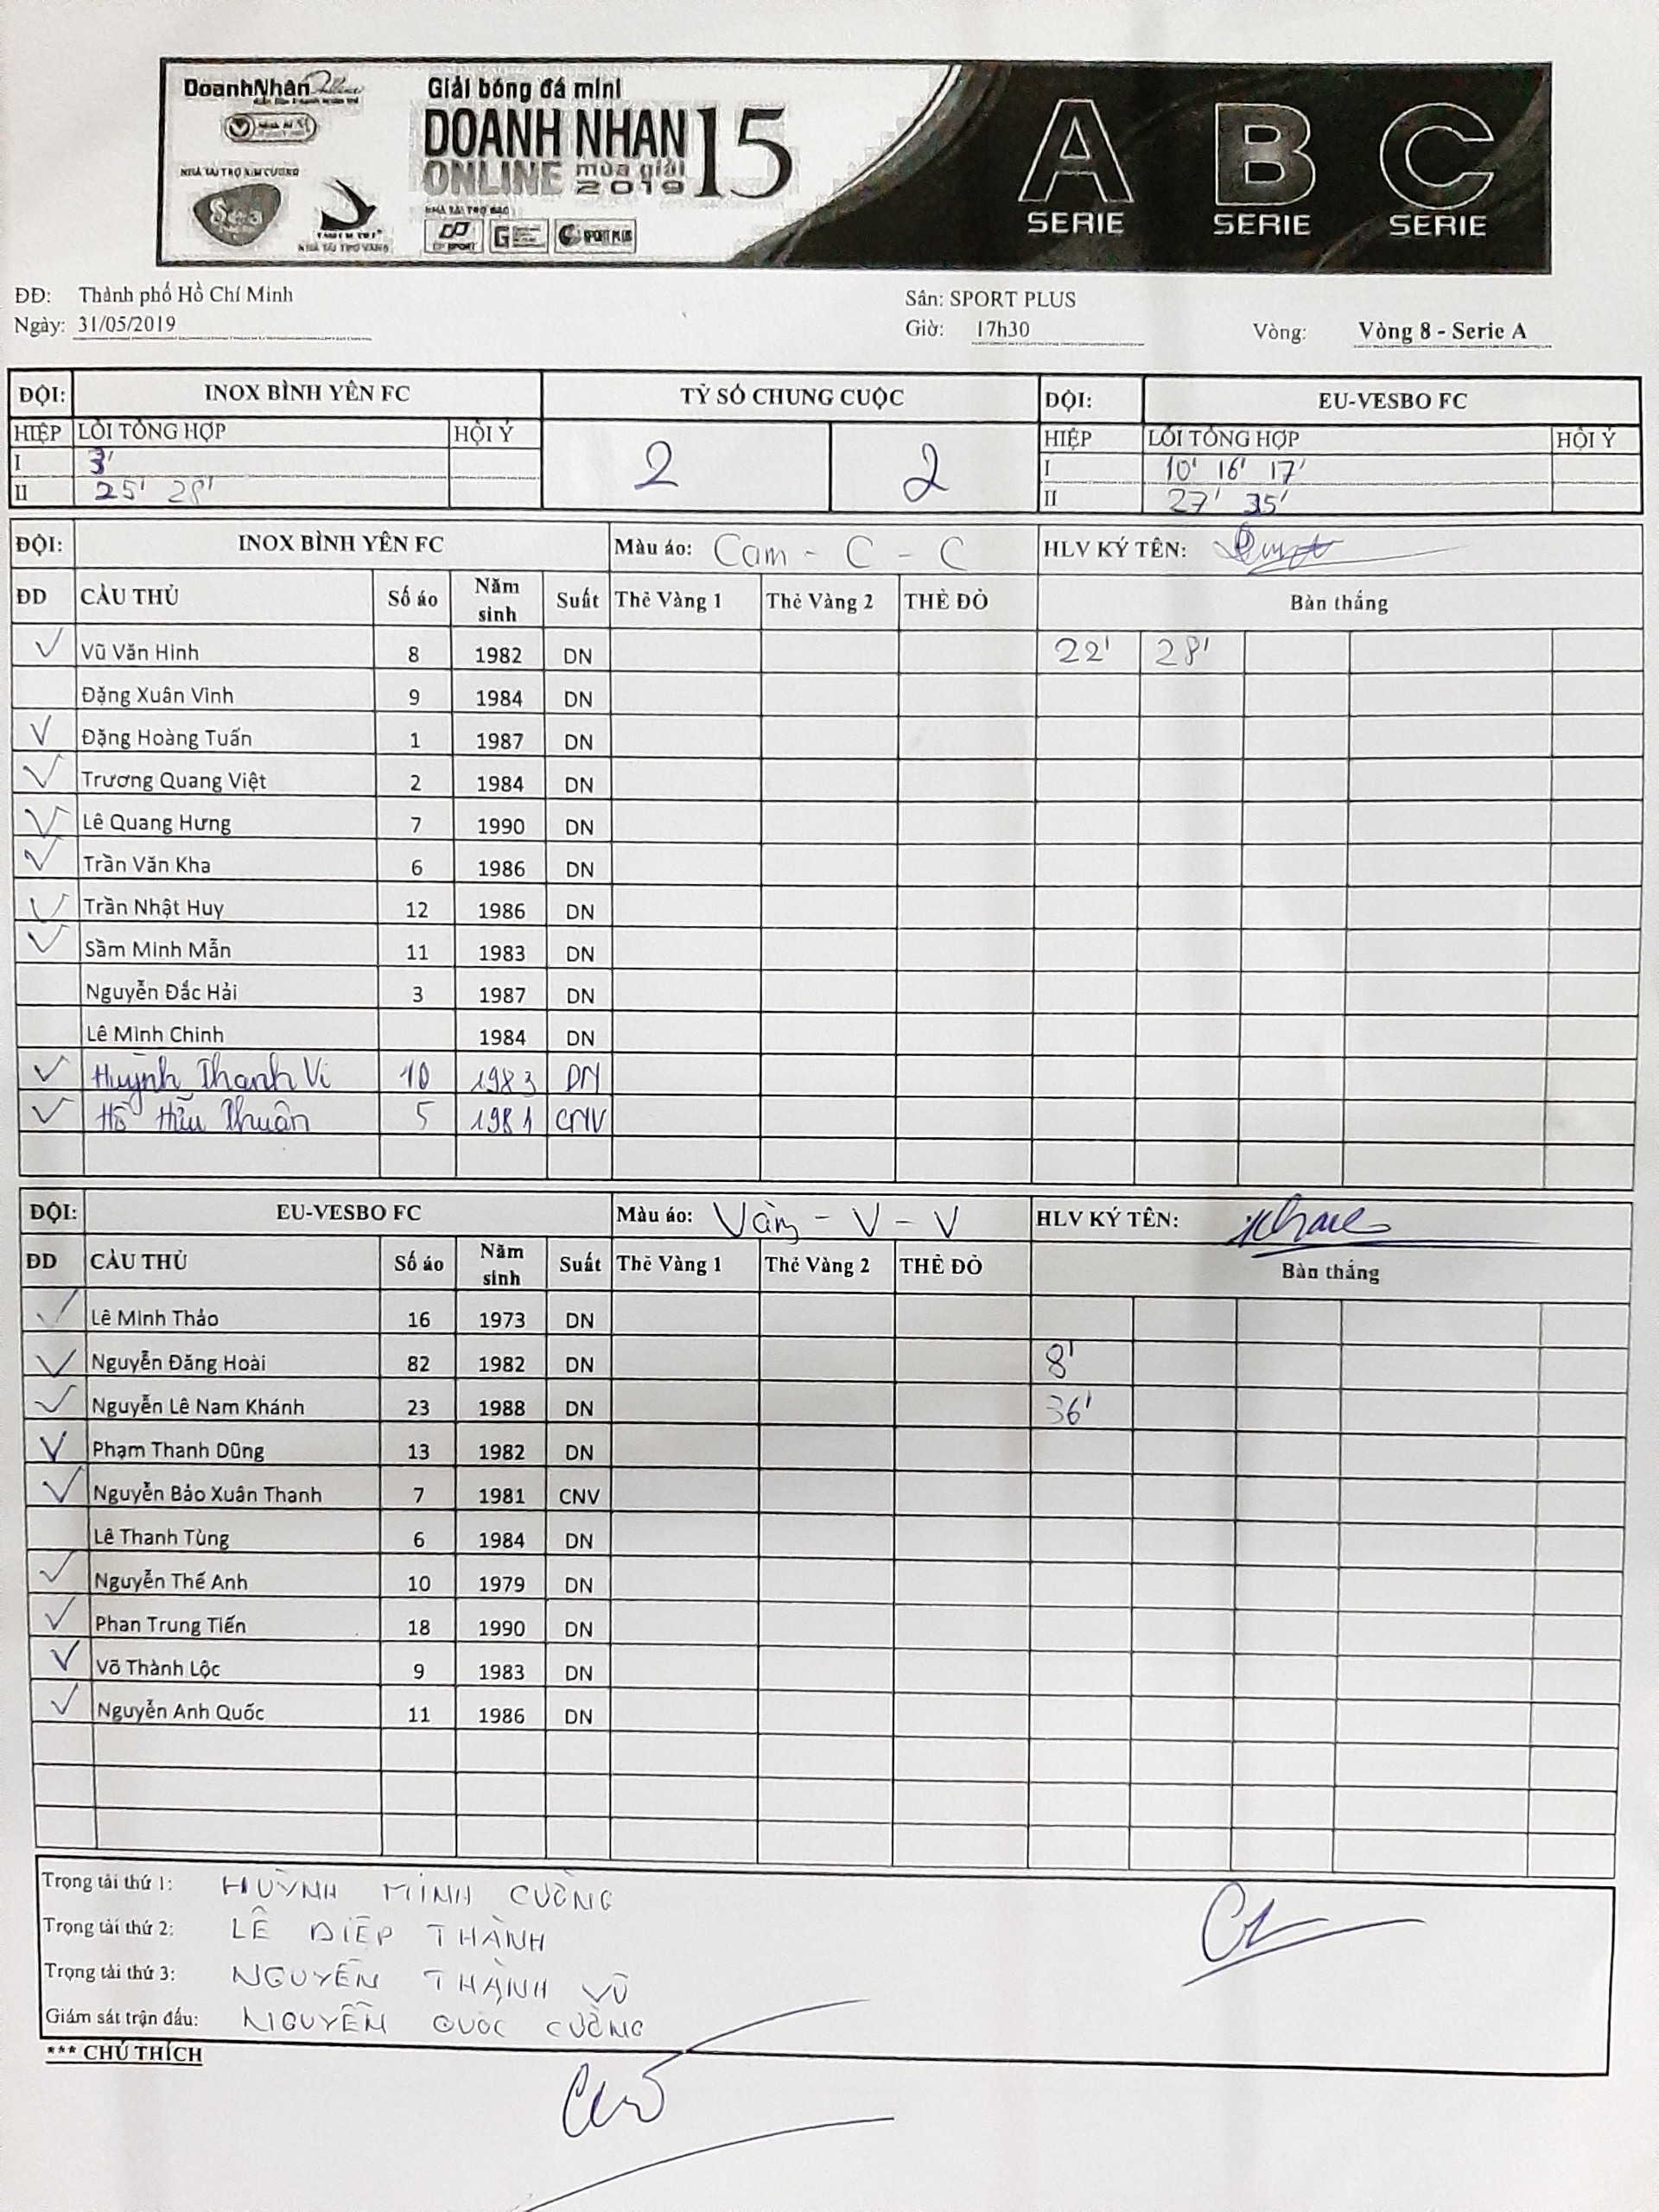 DoanhNhân Online
NHÀ TÀI TRỢ KIM CƯƠNG
NHÀ TÀI TRỢ VÀNG
Giải bóng đá mini
DOANH NHAN 15
ONLINE mùa giải 2019
NHÀ TÀI TRỢ BẠC
SPORT PLUS
A SERIE B SERIE C SERIE
ĐĐ: Thành phố Hồ Chí Minh Sân: SPORT PLUS
Ngày: 31/05/2019 Giờ: 17h30 Vòng: Vòng 8 - Serie A
ĐỘI: INOX BÌNH YÊN FC TỶ SỐ CHUNG CUỘC ĐỘI: EU-VESBO FC
HIỆP LỖI TỔNG HỢP HỘI Ý 2 2 HIỆP LỖI TỔNG HỢP HỘI Ý
I 3' I 10' 16' 17'
II 25' 28' II 27' 35'
ĐỘI: INOX BÌNH YÊN FC Màu áo: Cam - C - C HLV KÝ TÊN:
ĐD CẦU THỦ Số áo Năm sinh Suất Thẻ Vàng 1 Thẻ Vàng 2 THẺ ĐỎ Bàn thắng
Vũ Văn Hinh 8 1982 DN 22' 28'
Đặng Xuân Vinh 9 1984 DN
Đặng Hoàng Tuấn 1 1987 DN
Trương Quang Việt 2 1984 DN
Lê Quang Hưng 7 1990 DN
Trần Văn Kha 6 1986 DN
Trần Nhật Huy 12 1986 DN
Sầm Minh Mẫn 11 1983 DN
Nguyễn Đắc Hải 3 1987 DN
Lê Minh Chinh 1984 DN
Huỳnh Thanh Vi 10 1983 DN
Hồ Hữu Thuận 5 1981 CNV
ĐỘI: EU-VESBO FC Màu áo: Vàng - V - V HLV KÝ TÊN:
ĐD CẦU THỦ Số áo Năm sinh Suất Thẻ Vàng 1 Thẻ Vàng 2 THẺ ĐỎ Bàn thắng
Lê Minh Thảo 16 1973 DN
Nguyễn Đăng Hoài 82 1982 DN 8'
Nguyễn Lê Nam Khánh 23 1988 DN 36'
Phạm Thanh Dũng 13 1982 DN
Nguyễn Bảo Xuân Thanh 7 1981 CNV
Lê Thanh Tùng 6 1984 DN
Nguyễn Thế Anh 10 1979 DN
Phan Trung Tiến 18 1990 DN
Võ Thành Lộc 9 1983 DN
Nguyễn Anh Quốc 11 1986 DN
Trọng tài thứ 1: HUỲNH MINH CƯỜNG
Trọng tài thứ 2: LÊ DIỆP THÀNH
Trọng tài thứ 3: NGUYỄN THÀNH VŨ
Giám sát trận đấu: NGUYỄN QUỐC CƯỜNG
*** CHÚ THÍCH